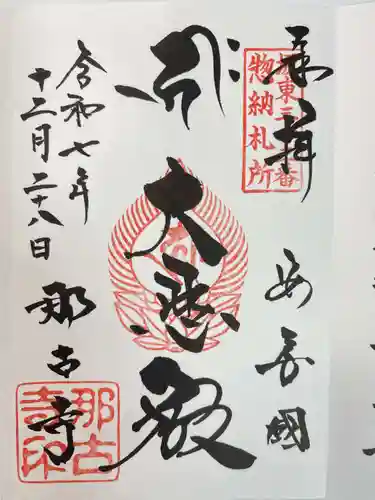 奉拝
坂東三十三番
惣納札所
安房國
大悲殿
令和七年
十二月二十八日
那古寺
那古
寺印